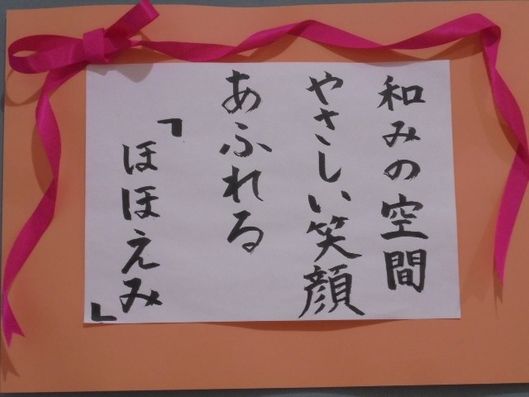 和みの空間
やさしい笑顔
あふれる
「ほほえみ」